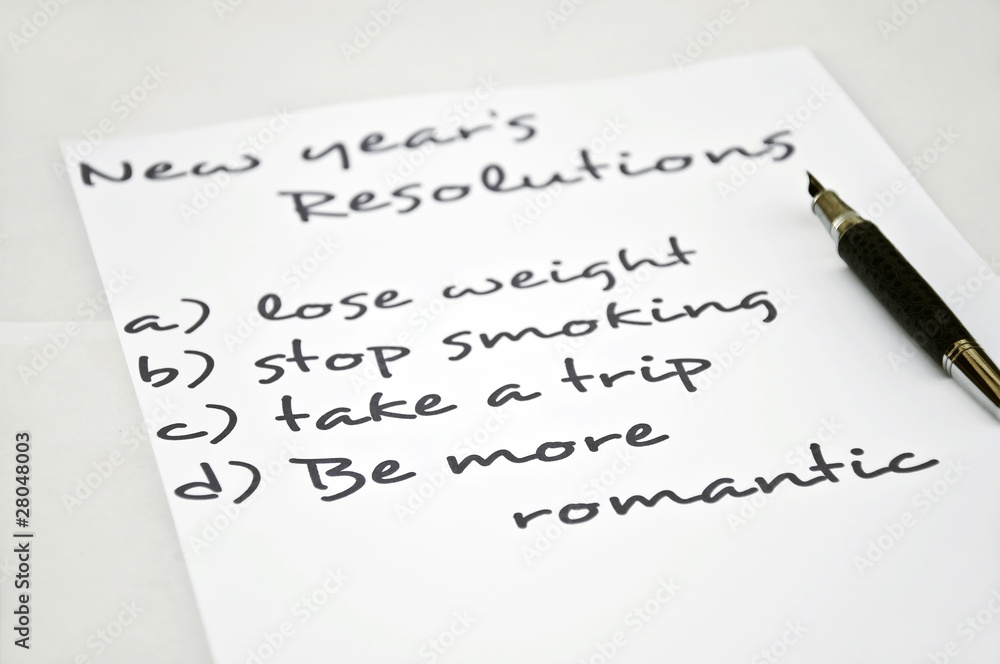 New year's
Resolutions
a) lose weight
b) stop smoking
c) take a trip
d) Be more
romantic
Adobe Stock | #28048003